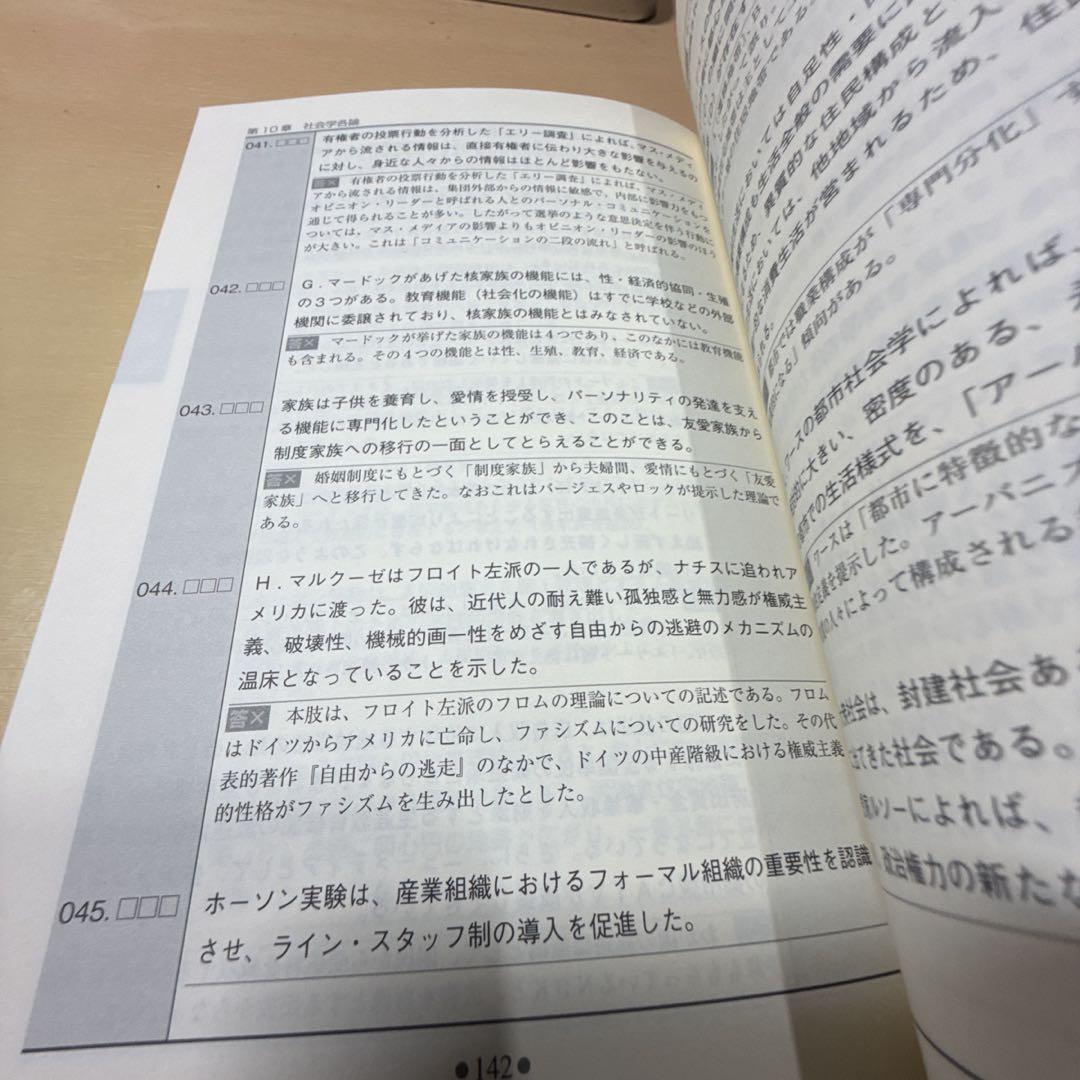 第10章 社会学各論
041.□□□ 有権者の投票行動を分析した「エリー調査」によれば、マス・メディ
アから流される情報は、直接有権者に伝わり大きな影響を与えるの
に対し、身近な人々からの情報はほとんど影響をもたない。
答× 有権者の投票行動を分析した「エリー調査」によれば、マス・メディ
アから流される情報は、集団外部からの情報に敏感で、内部に影響力をもつ
オピニオン・リーダーと呼ばれる人とのパーソナル・コミュニケーションを
通じて得られることが多い。したがって選挙のような意思決定を伴う行動に
ついては、マス・メディアの影響よりもオピニオン・リーダーの影響のほう
が大きい。これは「コミュニケーションの二段の流れ」と呼ばれる。
042.□□□ G.マードックがあげた核家族の機能には、性・経済的協同・生殖
の3つがある。教育機能(社会化の機能)はすでに学校などの外部
機関に委譲されており、核家族の機能とはみなされていない。
答× マードックが挙げた家族の機能は4つであり、このなかには教育機能
も含まれる。その4つの機能とは性、生殖、教育、経済である。
043.□□□ 家族は子供を養育し、愛情を授受し、パーソナリティの発達を支え
る機能に専門化したということができ、このことは、友愛家族から
制度家族への移行の一面としてとらえることができる。
答× 婚姻制度にもとづく「制度家族」から夫婦間、愛情にもとづく「友愛
家族」へと移行してきた。なおこれはバージェスやロックが提示した理論で
ある。
044.□□□ H.マルクーゼはフロイト左派の一人であるが、ナチスに追われア
メリカに渡った。彼は、近代人の耐え難い孤独感と無力感が権威主
義、破壊性、機械的画一性をめざす自由からの逃避のメカニズムの
温床となっていることを示した。
答× 本肢は、フロイト左派のフロムの理論についての記述である。フロム
はドイツからアメリカに亡命し、ファシズムについての研究をした。その代
表的著作『自由からの逃走』のなかで、ドイツの中産階級における権威主義
的性格がファシズムを生み出したとした。
045.□□□ ホーソン実験は、産業組織におけるフォーマル組織の重要性を認識
させ、ライン・スタッフ制の導入を促進した。
●142●
においては自足性・
も生活全般の需要に
異質的な住民構成と
においては、他地域から流入
消費生活が営まれるため、住
都市では職業構成が「専門分化」す
になる」傾向がある。
ワースの都市社会学によれば、
的に大きい、密度のある、
都市での生活様式を、「アー
ワースは「都市に特徴的な
を提示した。アーバニズ
の人々によって構成される
社会は、封建社会あ
てきた社会である。
ルソーによれば、
政治権力の新たな